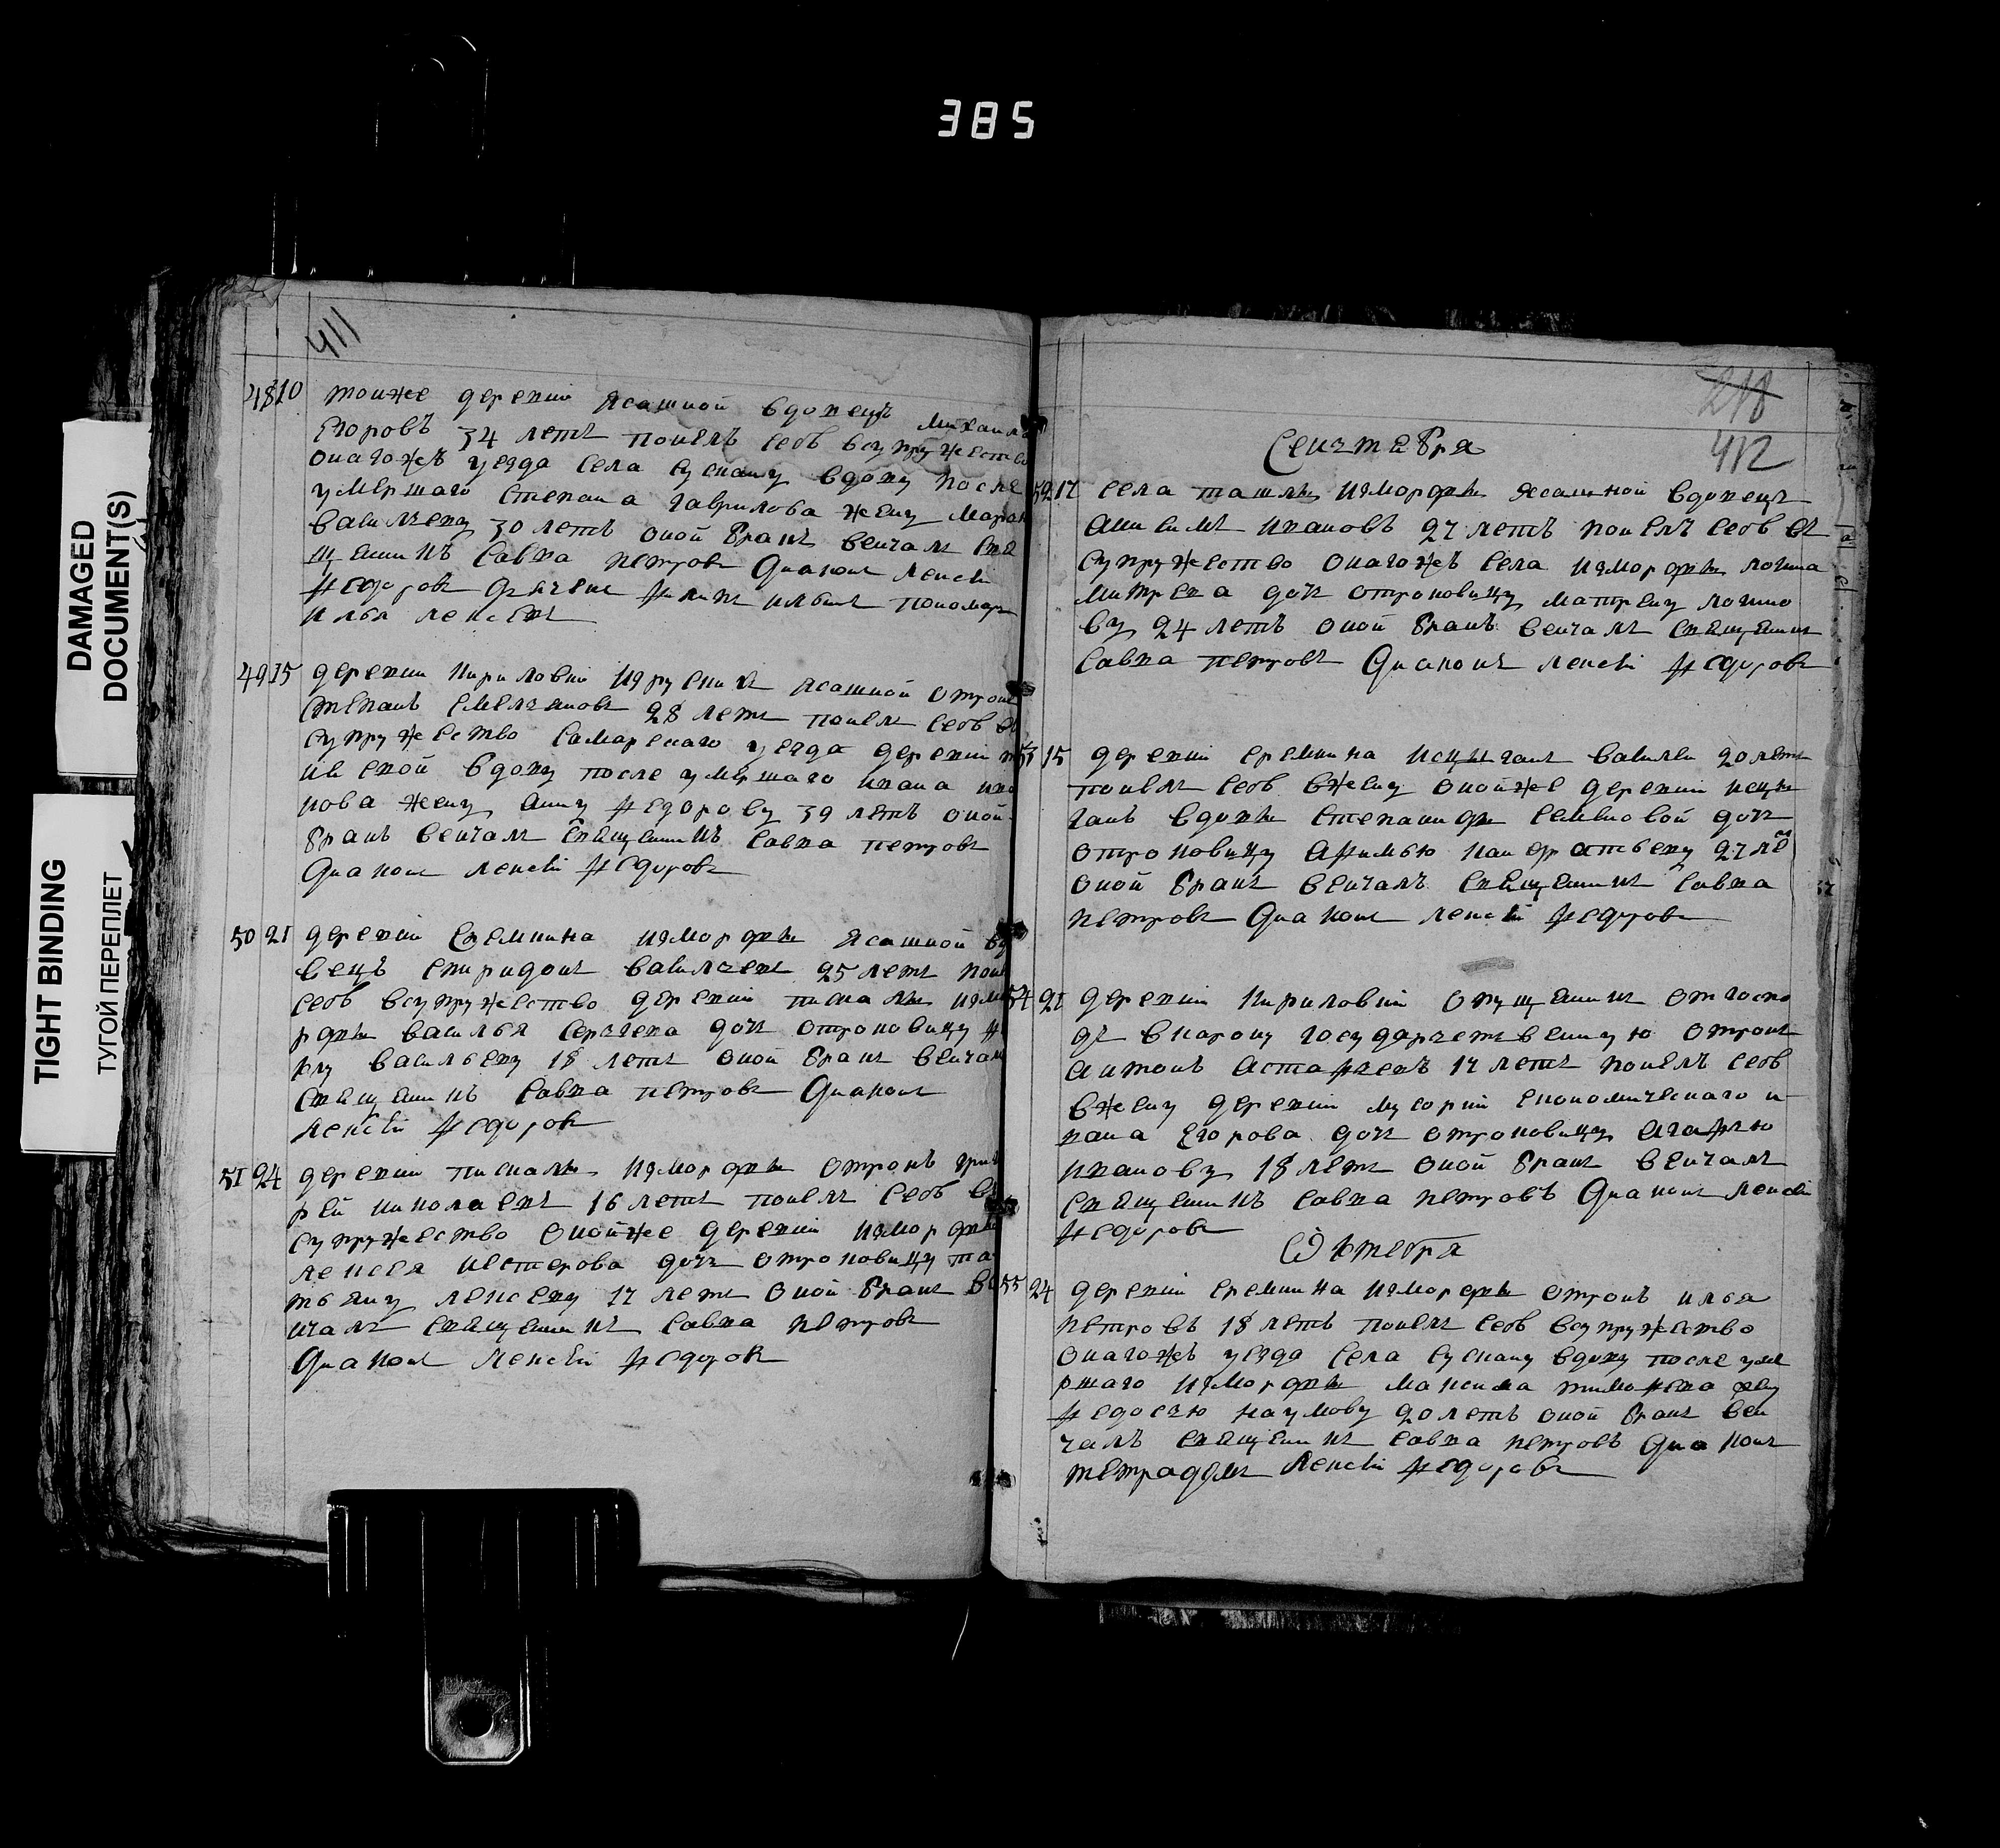 385
DAMAGED
DOCUMENT(S)
TIGHT BINDING
ТУГОЙ ПЕРЕПЛЕТ
411
48 10 тоиже деревни Ясашной вдовецъ Михаила
Егоровъ 34 летъ поиелъ себѣ всупружество
онагожъ уезда села сускану вдову после
умершаго Степана гаврилова жену
василеву 30 летъ оной бракъ венчалъ свя
щенникъ савва петровъ Диаконъ Лексѣй
Федоровъ дьячекъ илинъ пономарь
илья лексевъ
49 15 деревни кириловки ясашной отрокъ
степанъ емельяновъ 28 летъ поиелъ себѣ въ
супружество самарскаго уезда деревни
вдову после умершаго ивана ива
нова жену анну Федорову 39 летъ оной
бракъ венчалъ священникъ савва петровъ
Диаконъ лексѣй Федоровъ
50 21 деревни еремкина измордвы Ясашной вдо
вецъ спиридонъ василевъ 25 летъ поие
себѣ всупружество деревни пискалы измо
рдвы василья сергеева дочь отроковицу
василеву 18 летъ оной бракъ венчалъ
священникъ савва петровъ Диаконъ
лексѣй Федоровъ
51 24 деревни пискалы измордвы отрокъ григо
рей николаевъ 16 летъ поиелъ себѣ въ
супружество онойже деревни измордвы
лексея нестерова дочь отроковицу та
тьяну лексеву 17 летъ оной бракъ ве
нчалъ священникъ савва петровъ
Диаконъ лексѣй Федоровъ
218
412
Сентебря
52 17 села ташлы измордвы ясашной вдовецъ
анисимъ ивановъ 27 летъ поиелъ себѣ въ
супружество онагожъ села измордвы логина
митрева дочь отроковицу матрену логино
ву 24 летъ оной бракъ венчалъ священникъ
савва петровъ Диаконъ лексѣй Федоровъ
53 15 деревни еремкина исцыганъ василеи 20 летъ
поиелъ себѣ вжену онойже деревни исцы
ганъ вдовы степаниды семеновой дочь
отроковицу афимью панфратьеву 27 ле
оной бракъ венчалъ священникъ савва
петровъ Диаконъ лексѣй Федоровъ
54 21 деревни кириловки опущенникъ отгоспо
дъ внарону государственную отрокъ
антонъ астафьевъ 17 летъ поиелъ себѣ
вжену деревни мусорки економическаго и
вана Егорова дочь отроковицу агафью
иванову 18 летъ оной бракъ венчалъ
священникъ савва петровъ Диаконъ лексѣй
Федоровъ
Октебря
55 24 деревни еремкина измордвы отрокъ илья
петровъ 18 летъ поиелъ себѣ всупружество
онагожъ уезда села сускану вдову после уме
ршаго измордвы максима тимофева жену
Федосью наумову 20 летъ оной бракъ вен
чалъ священникъ савва петровъ Диаконъ
лексѣй Федоровъ